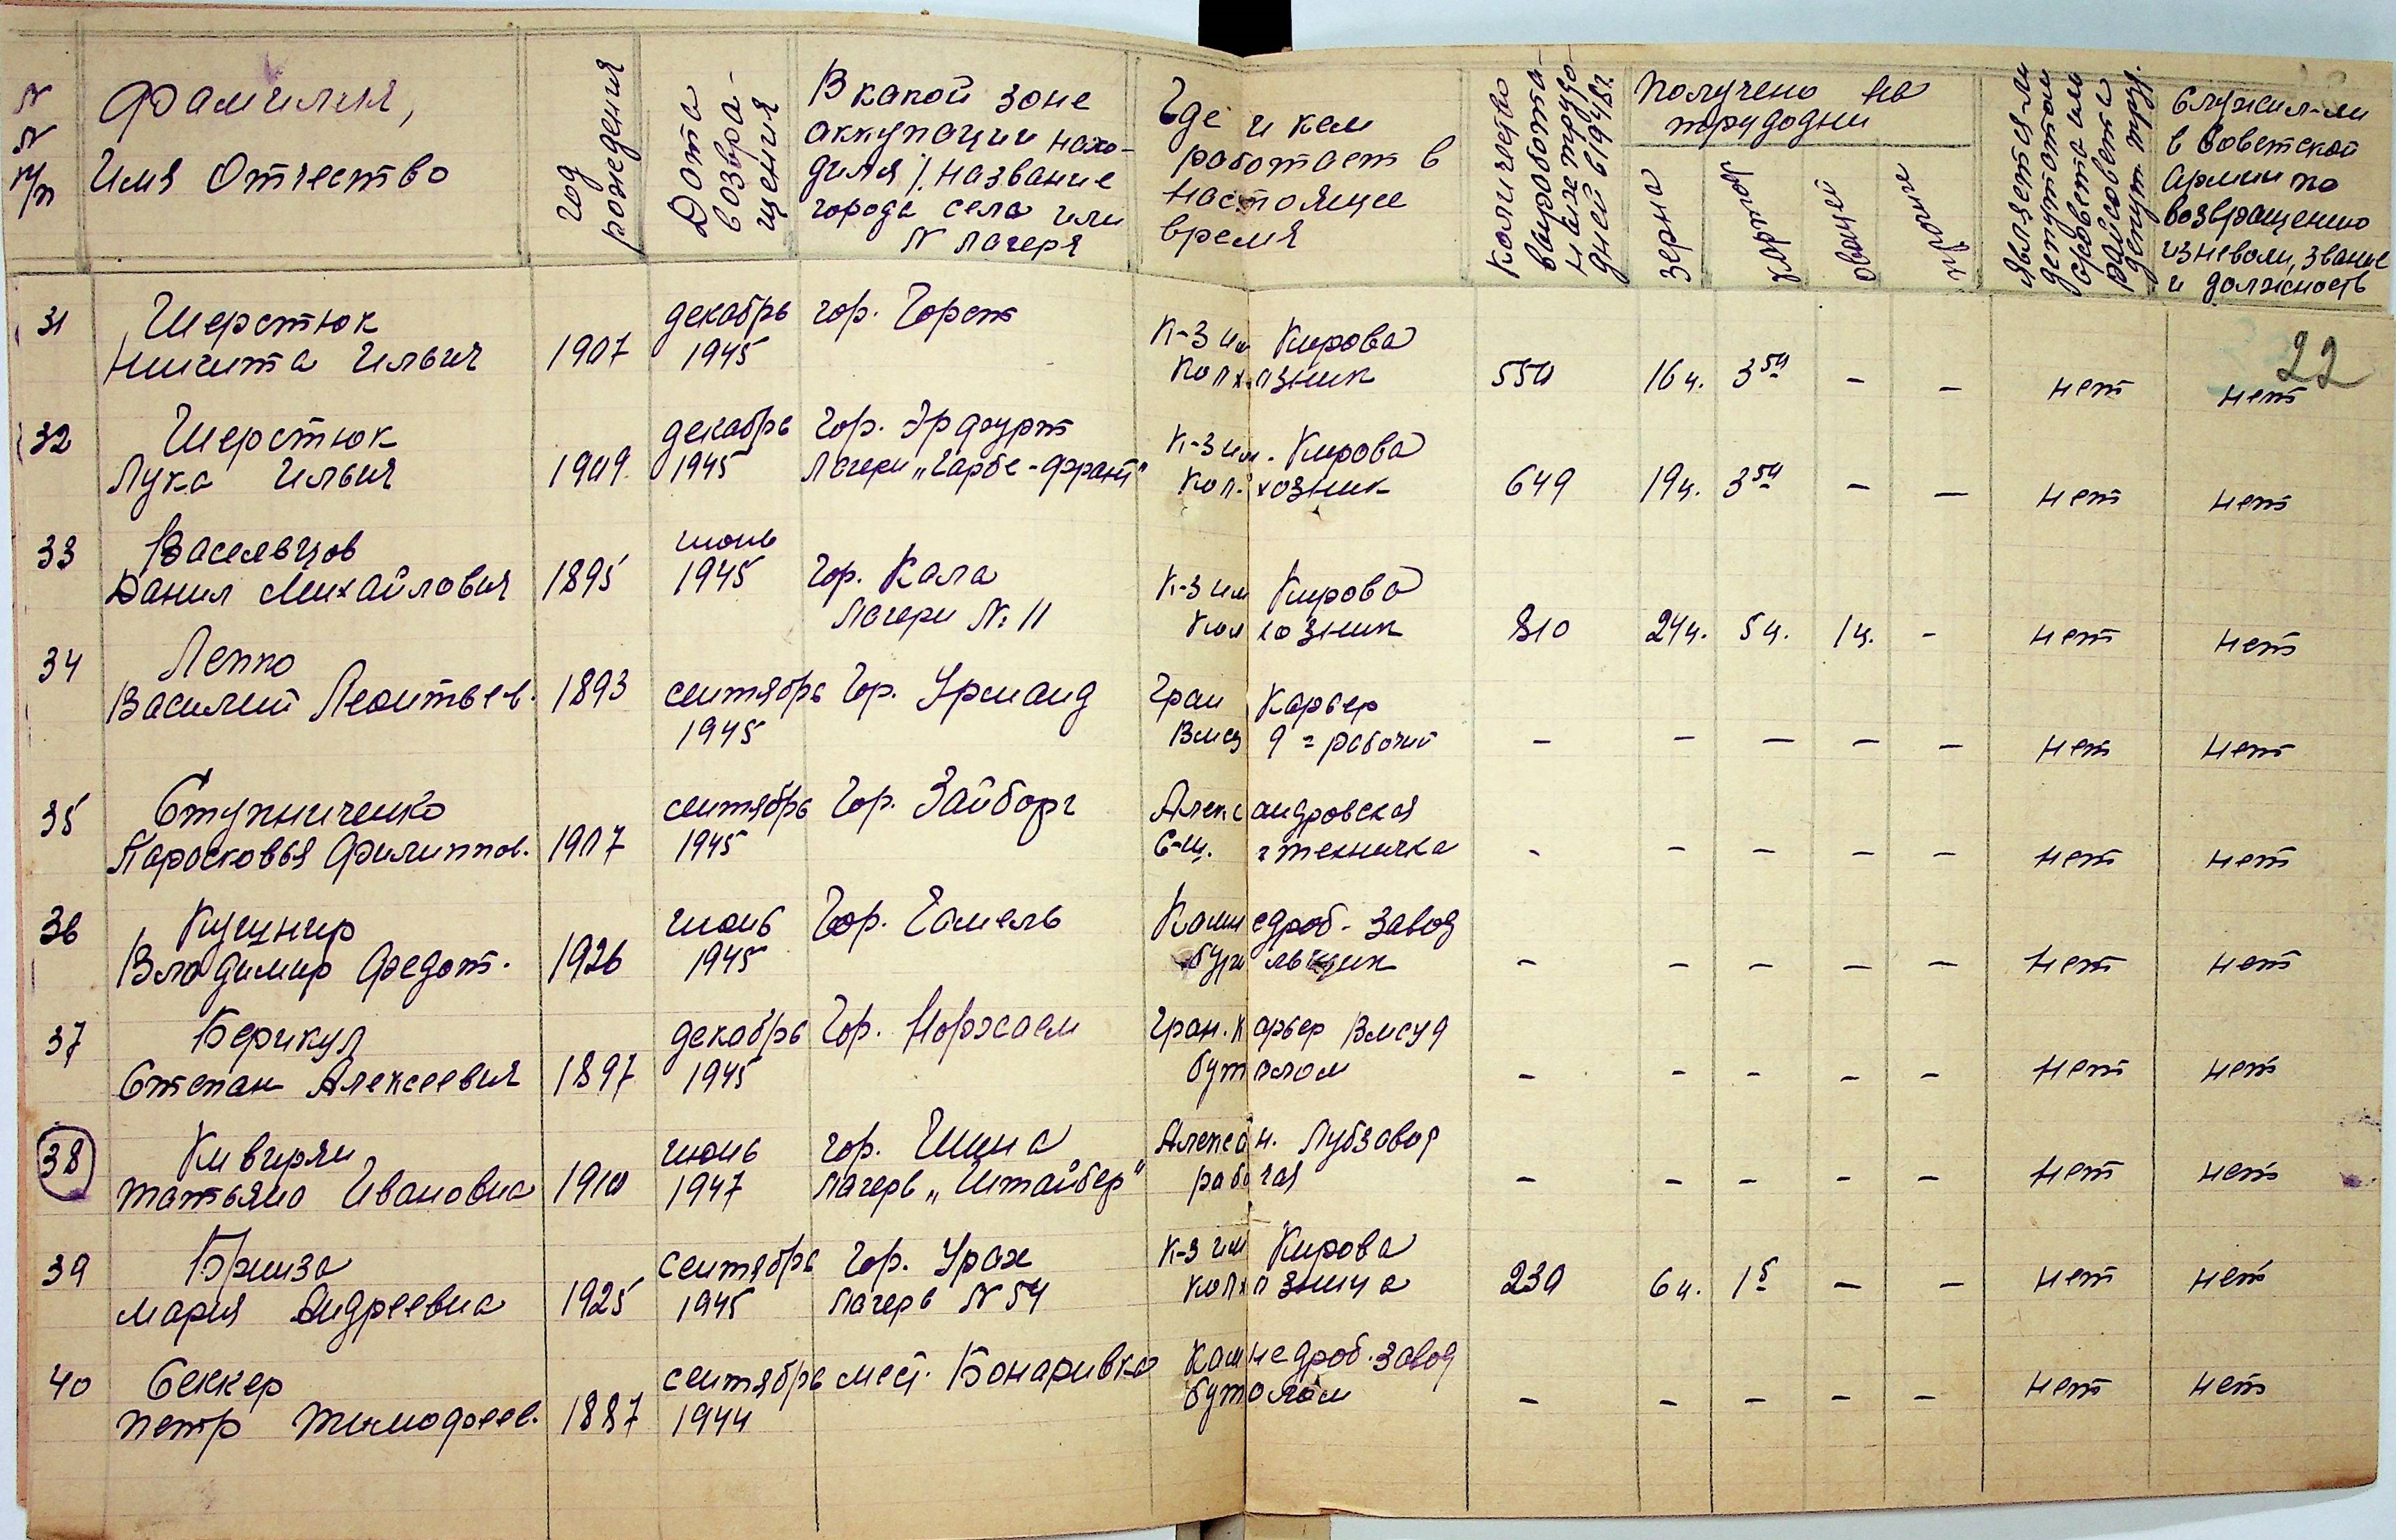 N N п/п
Фамилия,
Имя Отчество
год рождения
Дата возвра-щения
В какой зоне
аккупации нахо-
дился /. название
города села или
N лагеря
Где и кем
работает в
настоящее
время
Количество выработа-н ных трудо-дней в 1948 г.
Получено на
трудодни
зерна
картоф
овощей
прочие
Является-ли депутатом с/совета или райсовета депут. труд.
Служил-ли
в Советской
армии по
возвращению
из неволи, звание
и должность
22
31 Шерстюк декабрь гор. Горст К-з им Кирова
Никита Ильич 1907 1945 Колхозник 550 16 ц. 3 50 – – нет нет
32 Шерстюк декабрь Гор. Эрфурт К-з им. Кирова
Лука Ильич 1909 1945 Лагери „Гарбе-Франт" Кол-хозник 649 19 ц. 3 50 – – нет нет
33 Васельцов июнь
Данил Михайлович 1895 1945 Гор. Кала К-з им Кирова
Лагери № 11 Колхозник 810 24 ц. 5 ц. 1 ц. - нет нет
34 Лепко
Василий Леонтьев. 1893 сентябрь Гор. Урманд Гран Карьер
1945 Вмсу 9 = рабочий – – – – – нет нет
35 Ступниченко сентябрь Гор. Зайборг Александровская
Парасковья Филиппов. 1907 1945 С-ш. = техничка - – – – – нет нет
36 Кушнир июнь Гор. Гамель Камнедроб. завод
Владимир Федот. 1926 1945 бурильщик – – – – – нет нет
37 Берикул декабрь Гор. Норхаем Гран. Карьер Вмсу 9
Степан Алексеевич 1897 1945 бутолом – – – – – нет нет
38 Кивиряи июнь гор. Шина Алексан. Лубзавод
Татьяна Ивановна 1910 1947 лагерь „Штайбер" рабочая – – – – – нет нет
39 Бриза сентябрь Гор. Урах К-з им Кирова
Мария Андреевна 1925 1945 лагерь N 54 колхозница 230 6 ц. 1 5 – – нет нет
40 Секкер сентябрь мест. Бонаривка Камнедроб. завод
Петр Тимофеев. 1887 1944 бутолом – – – – – нет нет